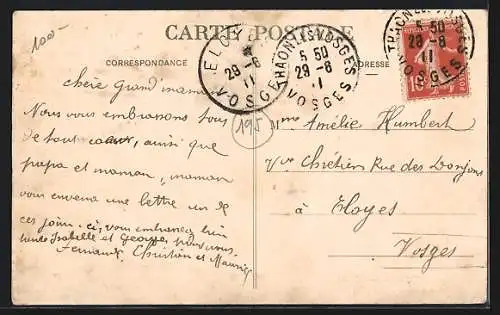 100-
CARTE POSTALE
CORRESPONDANCE
ADRESSE
ELOYES
29-8
11
VOSGES
THAON LES VOSGES
5 50
29-8
11
VOSGES
THAON LES VOSGES
5 50
29-8
11
VOSGES
10
POSTES
chère Grand'maman
Nous vous embrassons tous
de tout coeur, ainsi que
papa et maman, maman
vous enverra une lettre un de
ces jours-ci, vous embrassez bien
tante Isabelle et George, pour nous.
Fernande, Christian et Maurice
195
Mme Amélie Humbert
Vve Chrétien Rue des Donjons
à Eloyes
Vosges